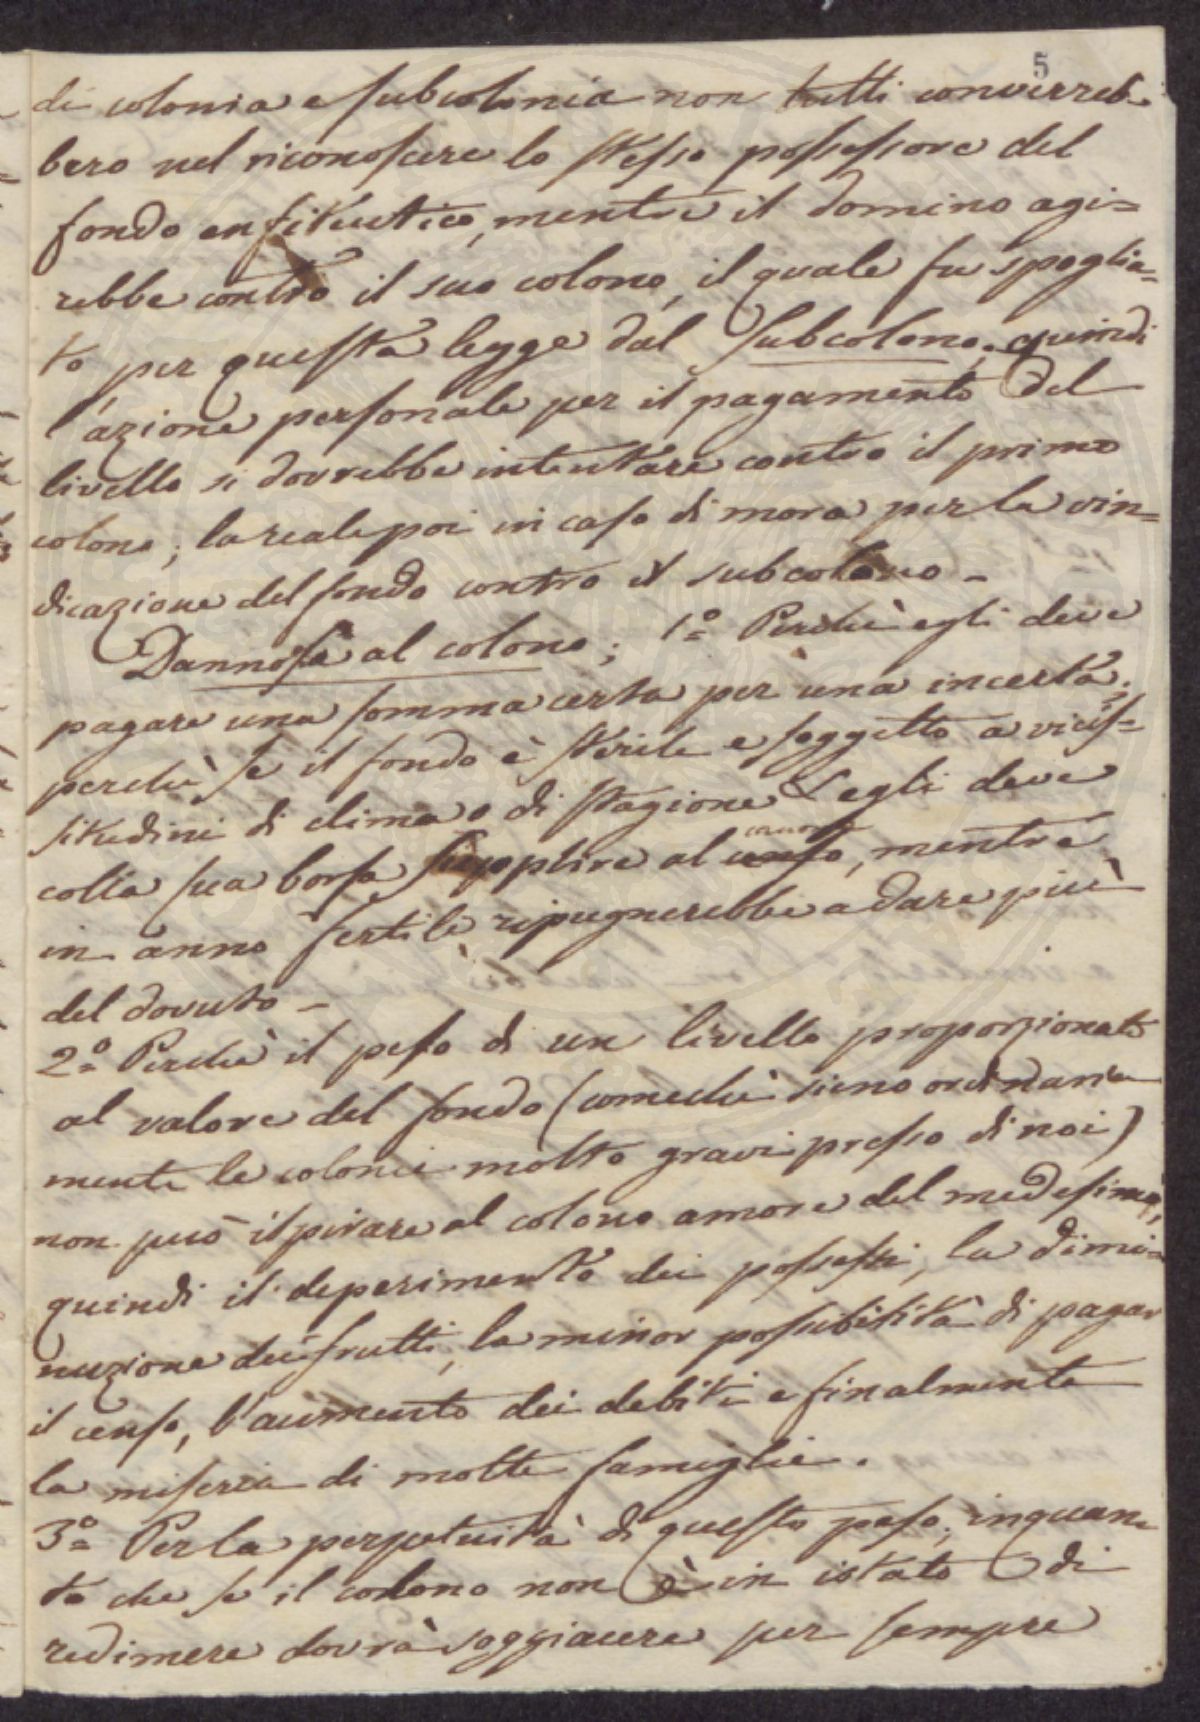 5
di colonia e subcolonia non tutti converreb=
bero nel riconoscere lo stesso possessore del
fondo enfiteutico, mentre il domino agi=
rebbe contro il suo colono, il quale fu spoglia=
to per questa legge dal Subcolono, quindi
l'azione personale per il pagamento del
livello si dovrebbe intentare contro il primo
colono; la reale poi in caso di mora per la vin=
dicazione del fondo contro il subcolono -
Dannosa al colono; 1º Perchè egli deve
pagare una somma certa per una incerta;
perchè se il fondo è sterile e soggetto a vicis=
situdini di clima o di stagione egli deve
colla sua borsa supplire al canone, mentre
in anno fertile ripugnerebbe a dare più
del dovuto -
2º Perchè il peso di un livello proporzionato
al valore del fondo (comechè sieno ordinaria
mente le colonie molto gravi presso di noi)
non può ispirare al colono amore del medesimo,
quindi il deperimento dei possessi, la dimi=
nuzione dei frutti, la minor possibilità di pagar
il censo, l'aumento dei debiti e finalmente
la miseria di molte famiglie.
3º Per la perpetuità di questo peso, inquan
to che se il colono non è in istato di
redimere dovrà soggiacere per sempre